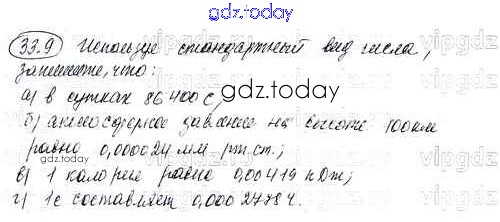 gdz.today
33.9 Используя стандартный вид числа,
запишите, что:
а) в сутках 86400 с; gdz.today
б) атмосферное давление на высоте 100 км
равно 0,000024 мм рт.ст.;
в) 1 калория равна 0,00419 кДж;
г) 1с составляет 0,000278 ч.
gdz.today